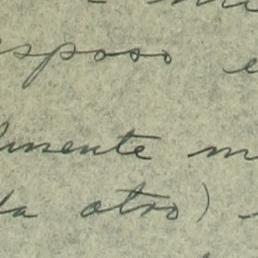 esposo e
lmente m
da otro)